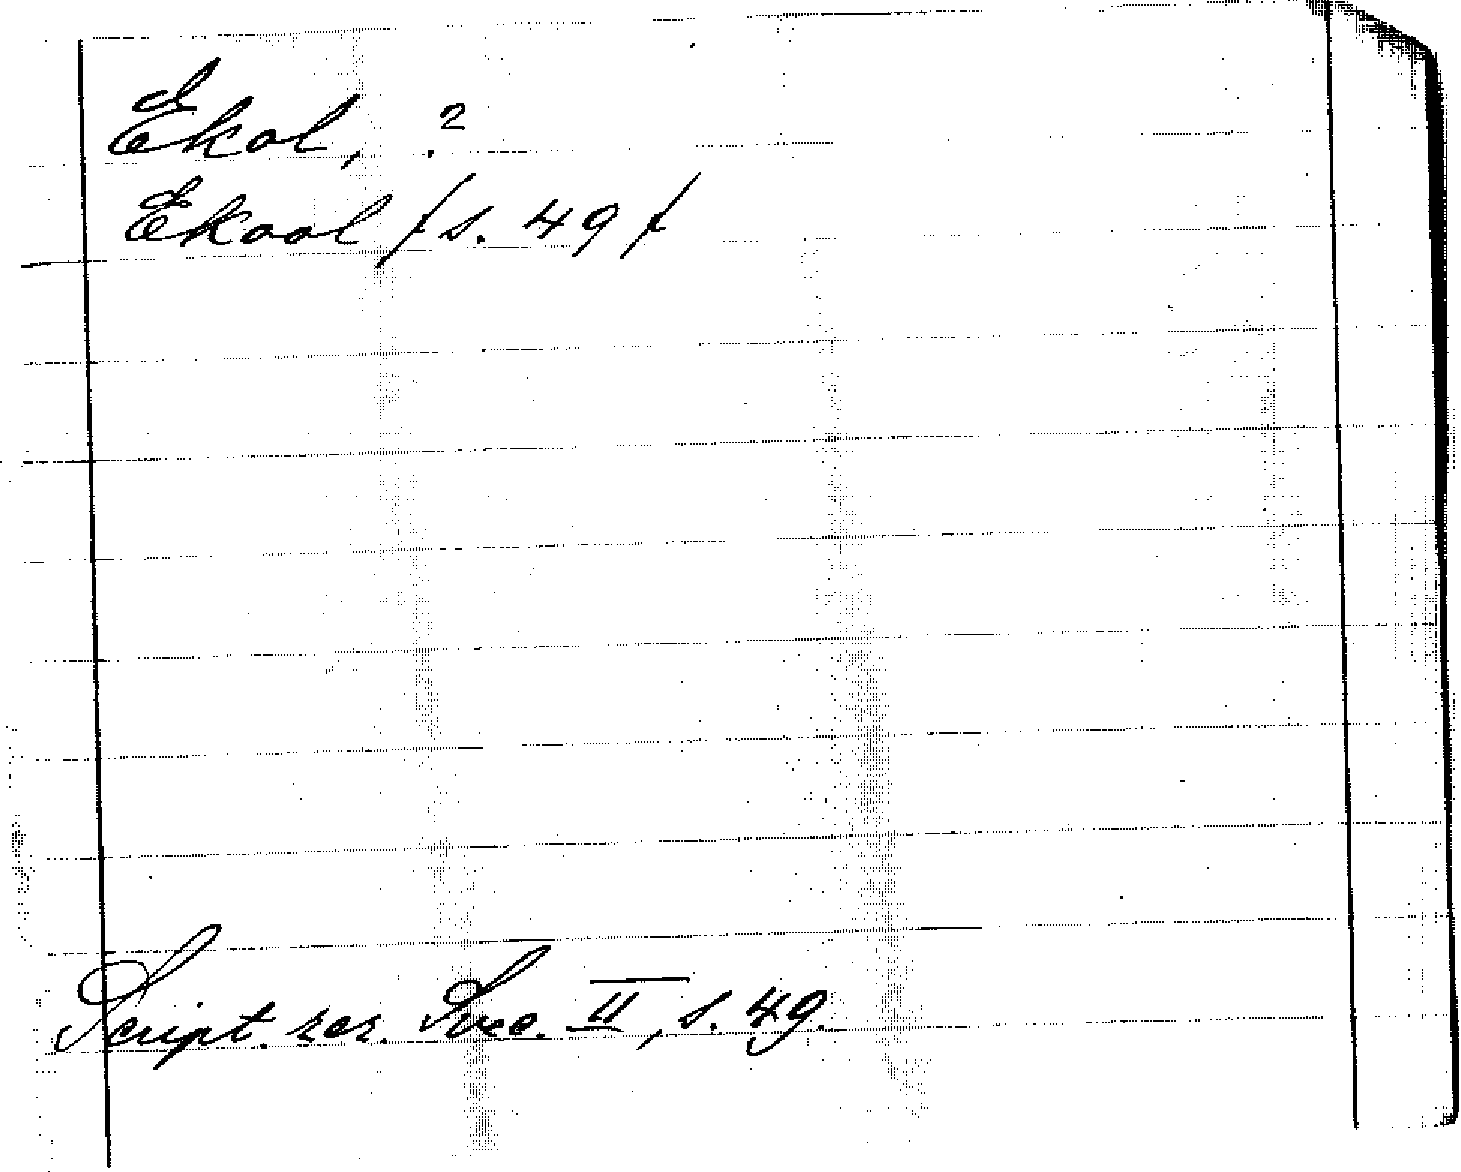 Ekol, ?
Ekool /s. 49/
Script. rer. Svec. II, s. 49.